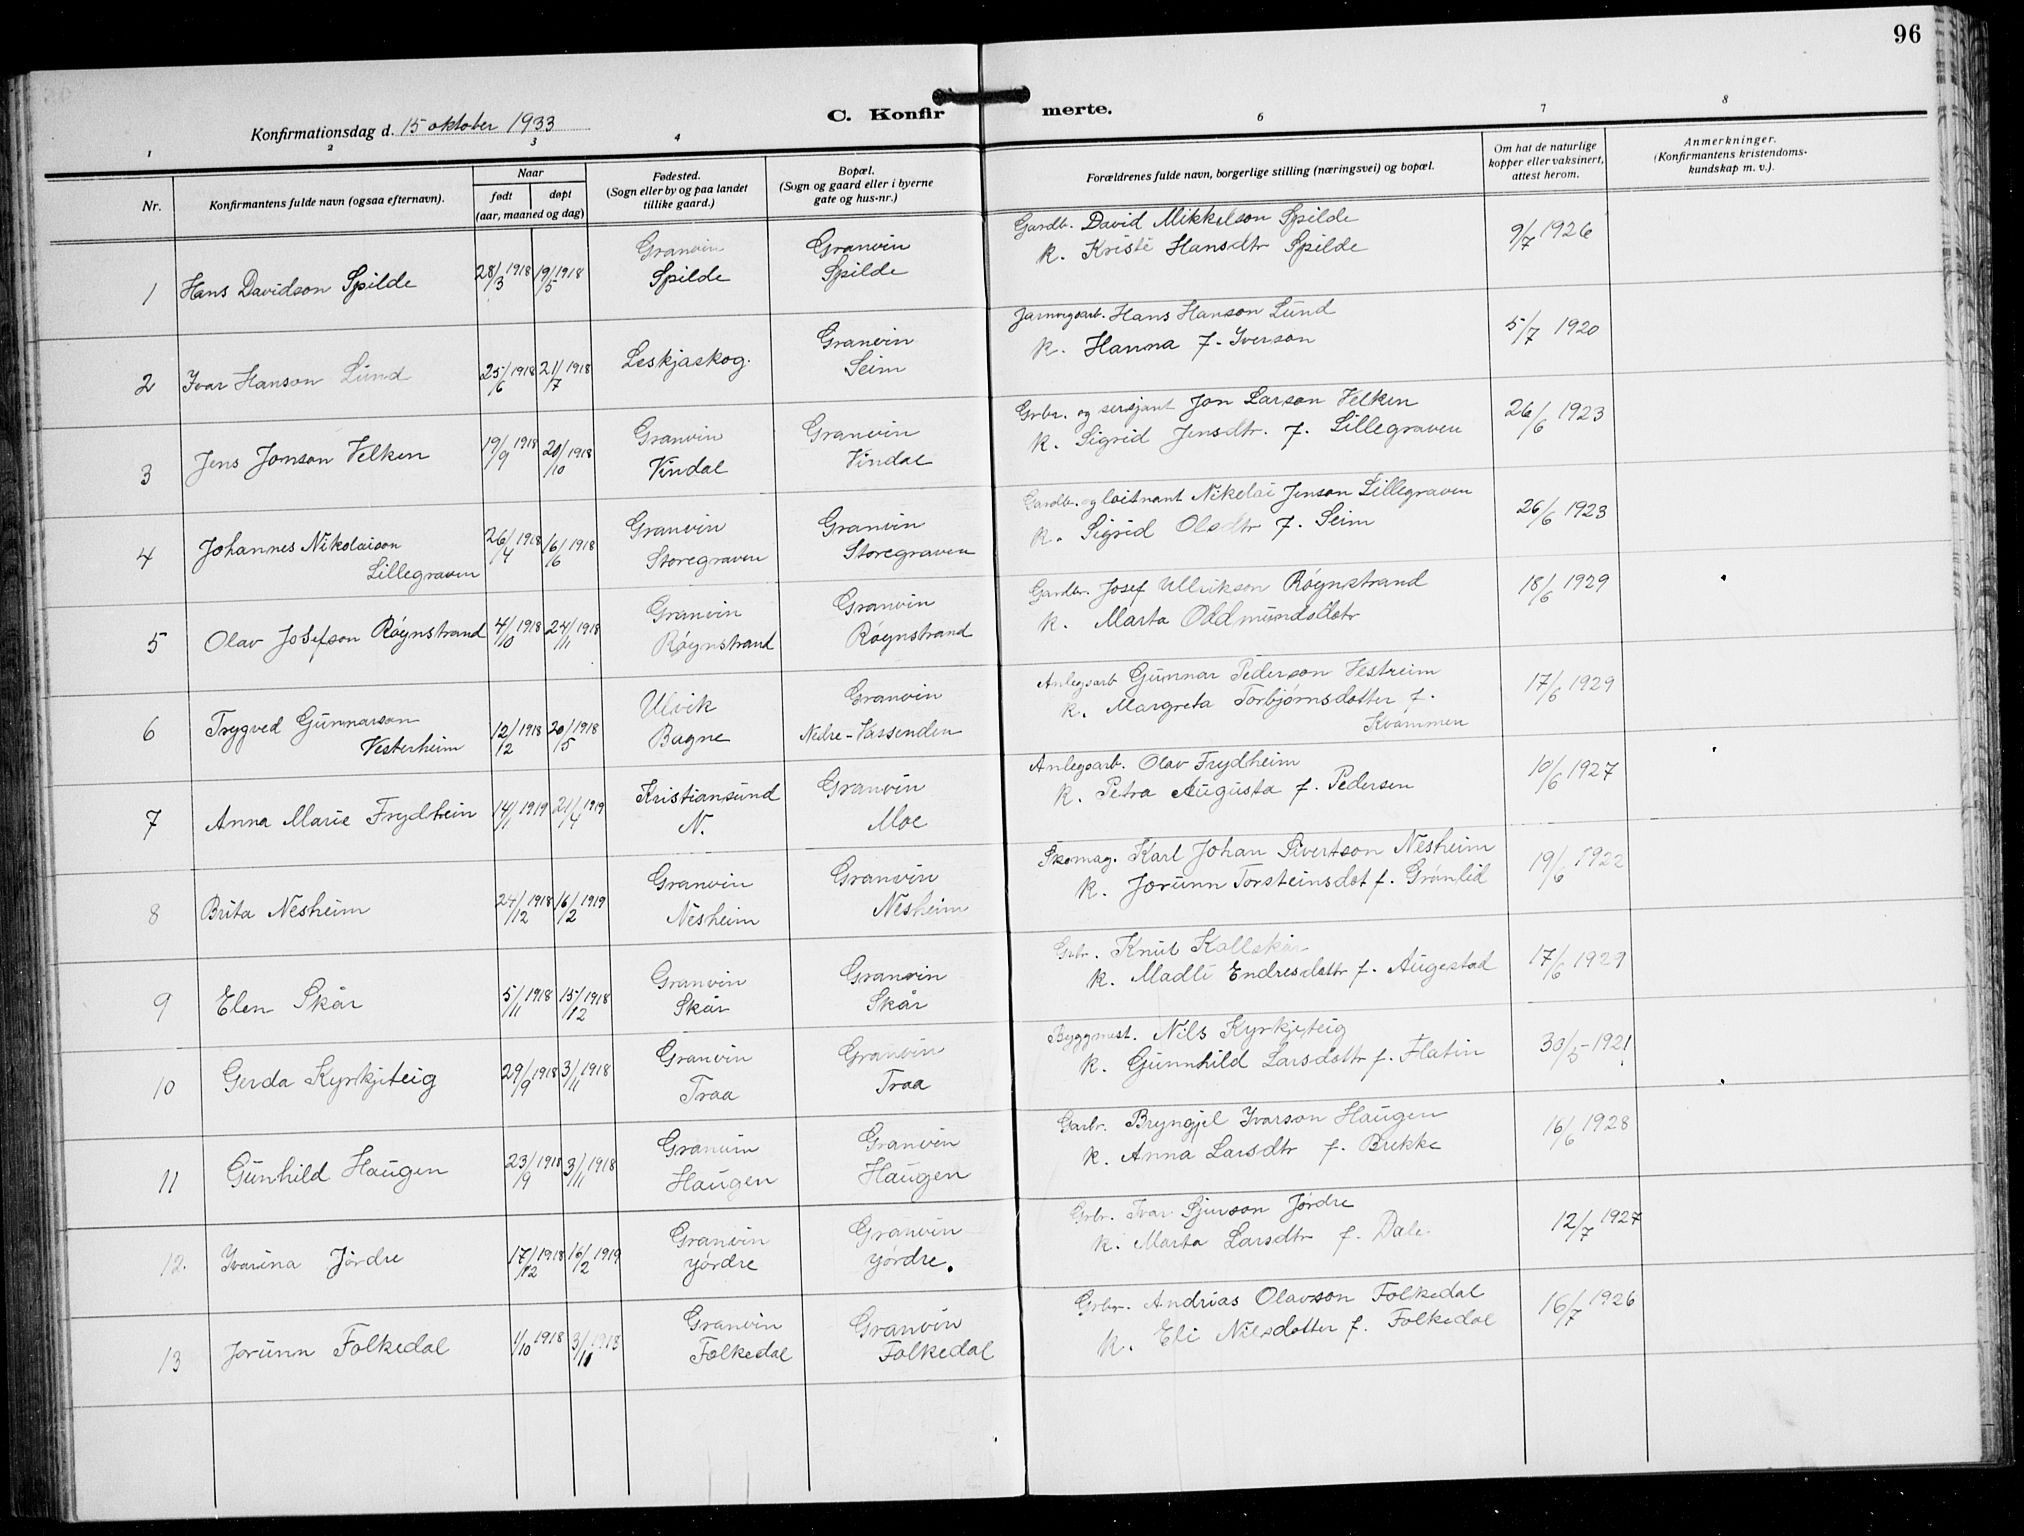 96
C. Konfirmerte.
Konfirmationsdag d. 15 oktober 1933
1 2 3 4 6 7 8
Nr.
Konfirmantens fulde navn (ogsaa efternavn).
Naar
født døpt
(aar, maaned og dag)
Fødested.
(Sogn eller by og paa landet
tillike gaard.)
Bopæl.
(Sogn og gaard eller i byerne
gate og hus-nr.)
Forældrenes fulde navn, borgerlige stilling (næringsvei) og bopæl.
Om hat de naturlige
kopper eller vaksinert,
attest herom.
Anmerkninger.
(Konfirmantens kristendoms-
kundskap m. v.).
1 Hans Davidson Spilde 28/3 1918 19/5 1918 Granvin Spilde Granvin Spilde
Gardb. David Mikkelson Spilde
k. Kristi Hansdtr Spilde
9/7 1926
2 Ivar Hanson Lund 25/6 1918 21/7 1918 Leskjaskog. Granvin Seim
Jarnvgsarb. Hans Hanson Lund
k. Hanna f. Iverson
5/7 1920
3 Jens Jonson Velken 19/9 1918 20/10 1918 Granvin Vindal Granvin Vindal
Grbr. og sersjant Jon Larson Velken
k. Sigrid Jensdtr. f. Lillegraven
26/6 1923
4 Johannes Nikolaison
Lillegraven 26/4 1918 16/6 1918 Granvin Storegraven Granvin Storegraven
Gardbr. og loitnant Nikolai Jenson Lillegraven
k. Sigrid Olsdtr f. Seim
26/6 1923
5 Olav Josefson Røynstrand 4/10 1918 24/11 1918 Granvin Røynstrand Granvin Røynstrand
Gardbr. Josef Ullrikson Røynstrand
k. Marta Oddmundsdotr
18/6 1929
6 Trygved Gunnarson
Vesterheim 12/2 1918 20/5 1918 Ulvik Bagne Granvin Nedre-Vassenden
Anlegsarb Gunnar Pederson Vestreim
k. Margreta Torbjørnsdotter f.
Kvammen
17/6 1929
7 Anna Marie Frydheim 14/1 1919 21/4 1919 Kristiansund N. Granvin Moe
Anlegsarb. Olav Frydheim
k. Petra Augusta f. Pedersen
10/6 1927
8 Brita Nesheim 24/12 1918 16/2 1919 Granvin Nesheim Granvin Nesheim
Skomag. Karl Johan Sivertson Nesheim
k. Jorunn Torsteinsdot f. Grønlid
19/6 1922
9 Elen Skår 5/11 1918 15/12 1918 Granvin Skår Granvin Skår
Grbr. Knut Kollskår
k. Madli Endresdottr f. Augestad
17/6 1929
10 Gerda Kyrkjeteig 29/9 1918 3/11 1918 Granvin Traa Granvin Traa
Byggmest. Nils Kyrkjeteig
k. Gunnhild Larsdottr f. Flatin
30/5-1921
11 Gunhild Haugen 23/9 1918 3/11 1918 Granvin Haugen Granvin Haugen
Garbr. Bryngjel Ivarson Haugen
k. Anna Larsdtr f. Brekke
16/6 1928
12. Ivarina Jørdre 17/12 1918 16/2 1919 Granvin Yørdre Granvin Yørdre.
Grbr. Ivar Sjurson Jørdre
k. Marta Larsdtr f. Dale.
12/7 1927
13 Jorunn Folkedal 1/10 1918 3/11 1918 Granvin Folkedal Granvin Folkedal
Grbr. Andrias Olavson Folkedal
k. Eli Nilsdotter f. Folkedal
16/7 1926